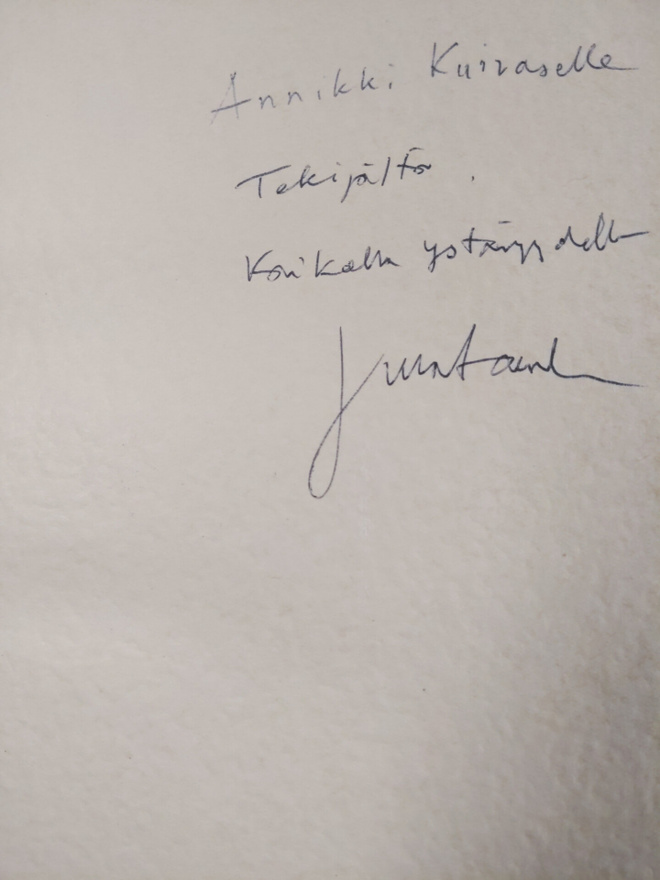 Annikki Kuivaselle
Tekijältä.
Kaikella ystävyydellä